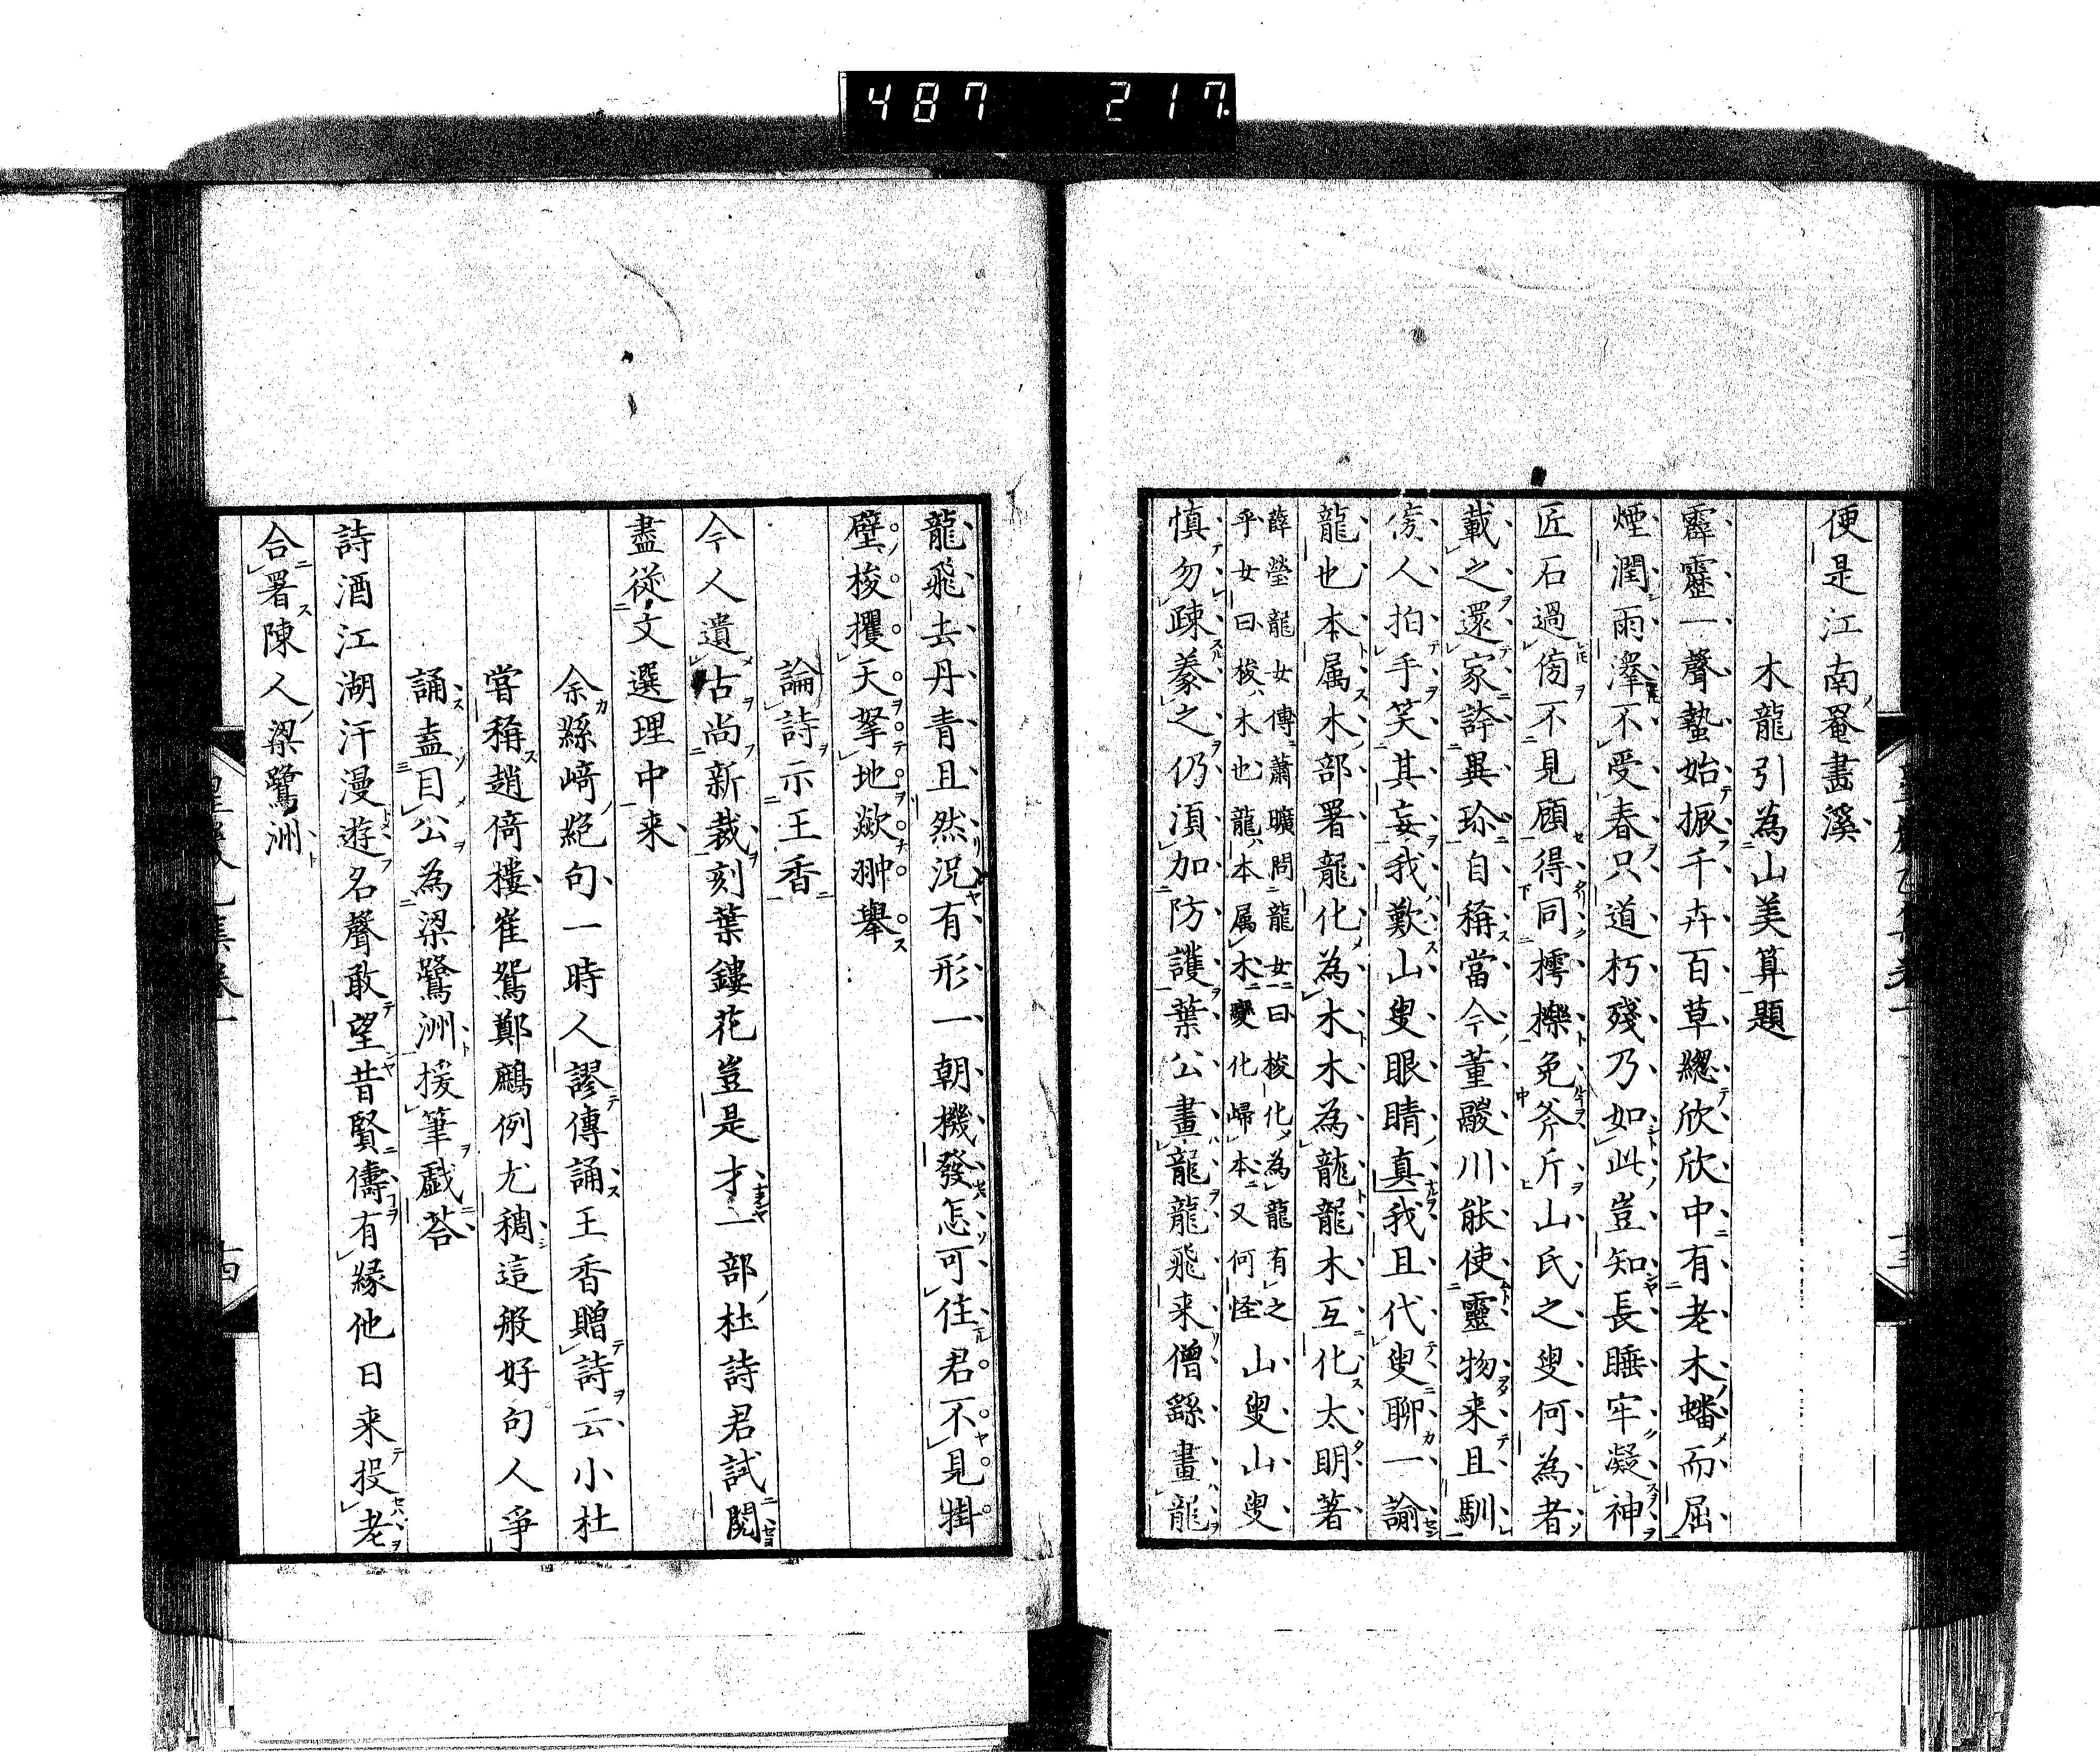 487 217.
便是江南罨畵溪
木龍引為山美算題
霹靂一聲蟄始振千卉百草總欣欣中有老木蟠而屈
煙潤雨澤不受春只道朽殘乃如此豈知長睡牢凝神
匠石過傍不見顧得同樗櫟免斧斤山氏之叟何為者
載之還家誇異珍自稱當今董醱川能使靈物来且馴
傍人拍手笑其妄我歎山叟眼睛真我且代叟聊一諭
龍也本属木部署龍化為木木為龍龍木互化太明著
薛瑩龍女傳蕭曠問龍女曰梭化為龍有之
乎女曰梭木也龍本属木變化歸本又何怪
山叟山叟
慎勿踈豢之仍湏加防護葉公畫龍龍飛来僧繇畫龍
龍飛去丹青且然況有形一朝機發怎可住君不見掛
壁梭攫天拏地歘翀舉
論詩示王香
今人遺古尚新裁刻葉鏤花豈是才一部杜詩君試閱
盡從文選理中来
余縣崎絕句一時人謬傳誦王香贈詩云小杜
嘗稱趙倚樓崔鴛鄭鷓例尤稠這般好句人爭
誦盍目公為梁鷺洲援筆戲荅
詩酒江湖汗漫遊名聲敢望昔賢儔有緣他日来投老
合署陳人梁鷺洲